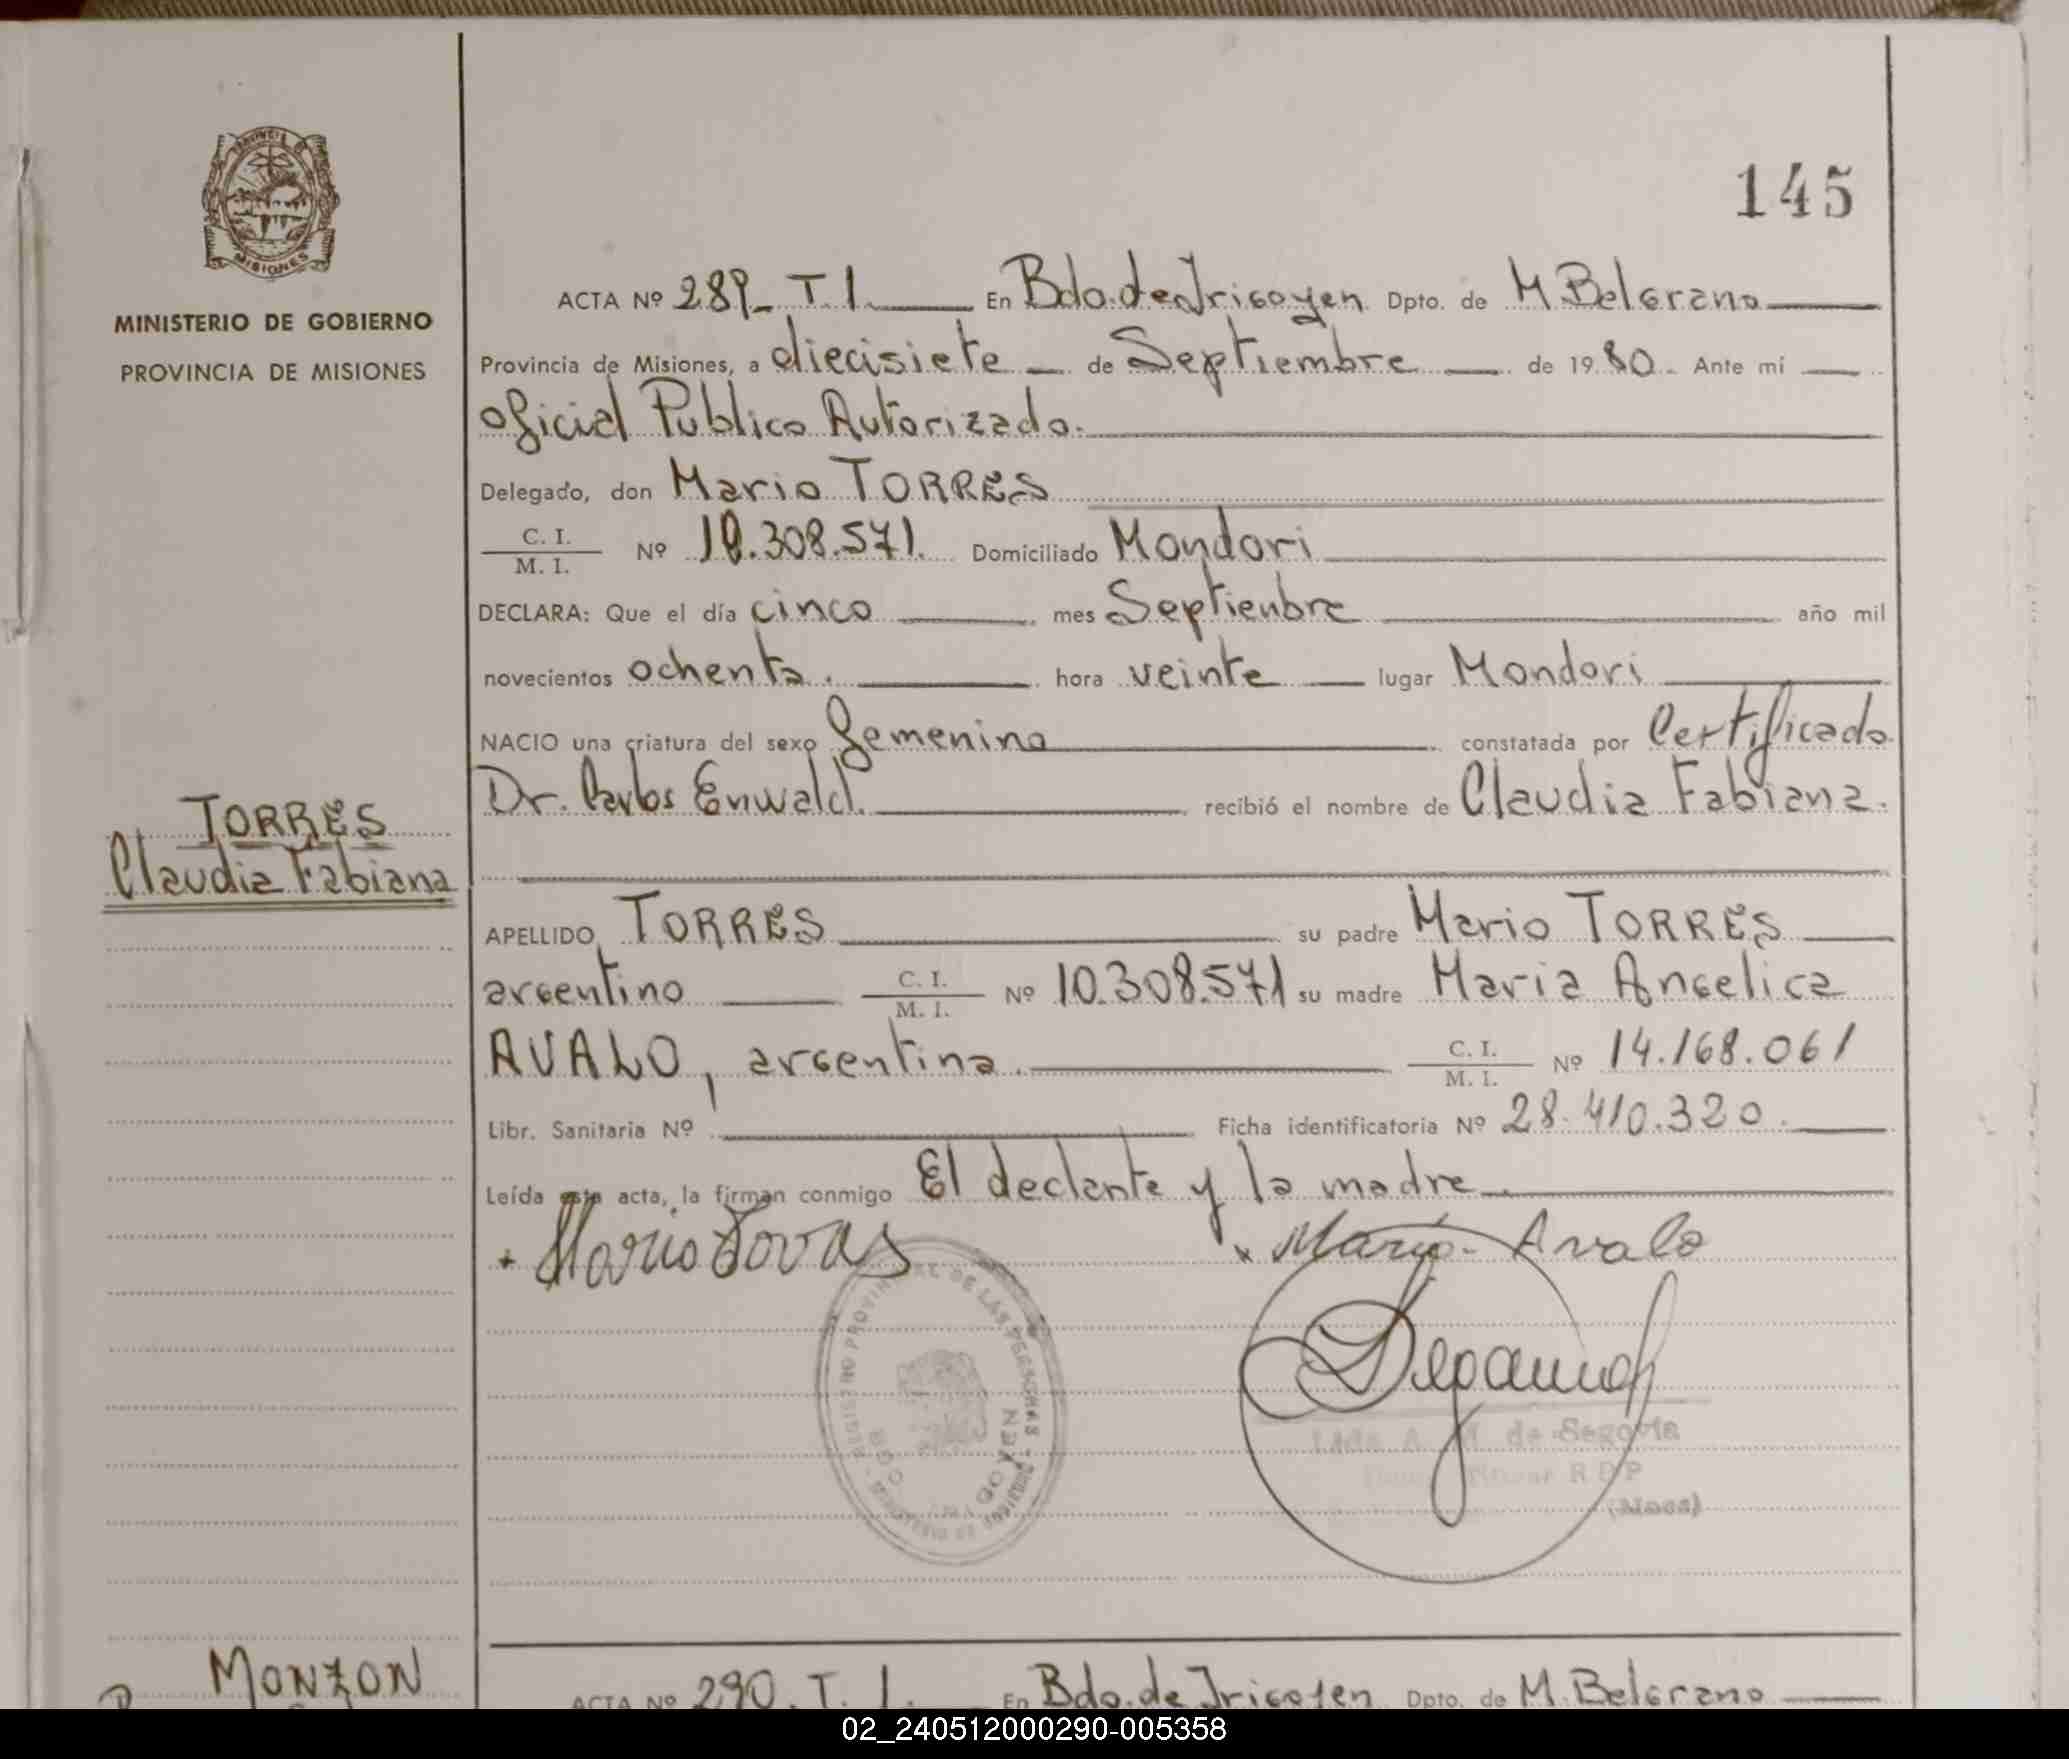 145
PROVINCIA DE
MISIONES
MINISTERIO DE GOBIERNO
PROVINCIA DE MISIONES
ACTA Nº 289_ T. I. En Bdo. de Irigoyen Dpto. de M. Belgrano
Provincia de Misiones, a diecisiete de Septiembre de 1980. Ante mí
oficial Publico Autorizado.
Delegado, don Mario TORRES
C. I.
M. I. Nº 10.308.571. Domiciliado Mondori
DECLARA: Que el día cinco mes Septienbre año mil
novecientos ochenta. hora veinte lugar Mondori
NACIO una criatura del sexo femenino constatada por Certificado
Dr. Carlos Enwald. recibió el nombre de Claudia Fabiana.
TORRES
Claudia Fabiana
APELLIDO TORRES su padre Mario TORRES
argentino C. I.
M. I. Nº 10.308.571 su madre Maria Angelica
AVALO, argentina. C. I.
M. I. Nº 14.168.061
Libr. Sanitaria Nº Ficha identificatoria Nº 28.410.320.
Leída esta acta, la firman conmigo El declante y la madre.
+ Mario Torres x Maria - Avalo
REGISTRO PROVINCIAL DE LAS PERSONAS
BDO. IRIGOYEN
A. M. de Segovia
Titular R D P
(Mnes)
MONZON
ACTA Nº 290. T. I. En Bdo. de Irigoyen Dpto. de M. Belgrano
02_240512000290-005358